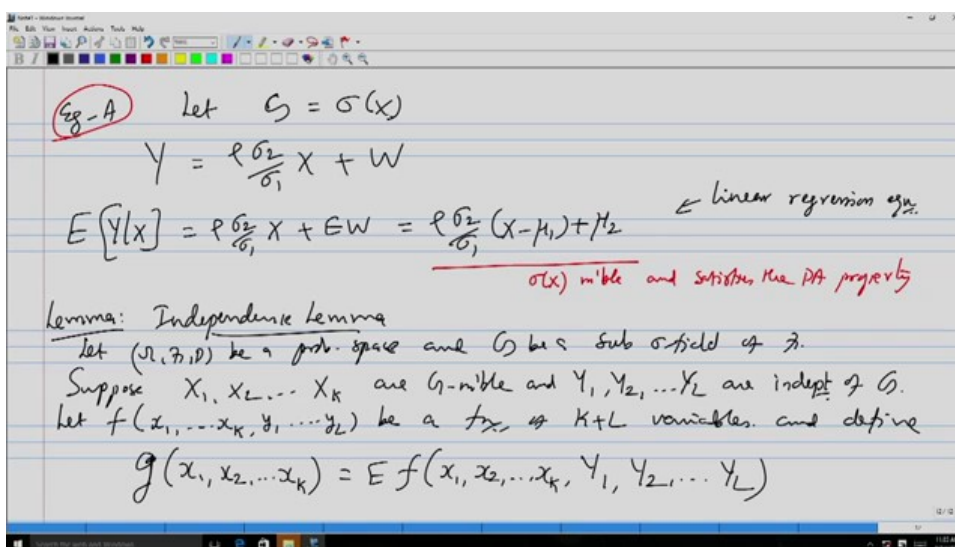 Note1 - Windows Journal
File Edit View Insert Actions Tools Help
B I
Eg-A Let G = σ(X)
Y = ρ σ₂/σ₁ X + W
E[Y|X] = ρ σ₂/σ₁ X + EW = ρ σ₂/σ₁ (X-μ₁)+μ₂ ← linear regression eqn.
σ(X) m'ble and satisfies the PA property
Lemma: Independence Lemma
Let (Ω, F, P) be a prob. space and G be a sub σ-field of F.
Suppose X₁, X₂, ... X_K are G-m'ble and Y₁, Y₂, ... Y_L are indept of G.
Let f(x₁, ... x_K, y₁ ... y_L) be a fn. of K+L variables. and define
g(x₁, x₂, ... x_K) = E f(x₁, x₂, ... x_K, Y₁, Y₂, ... Y_L)
12/12